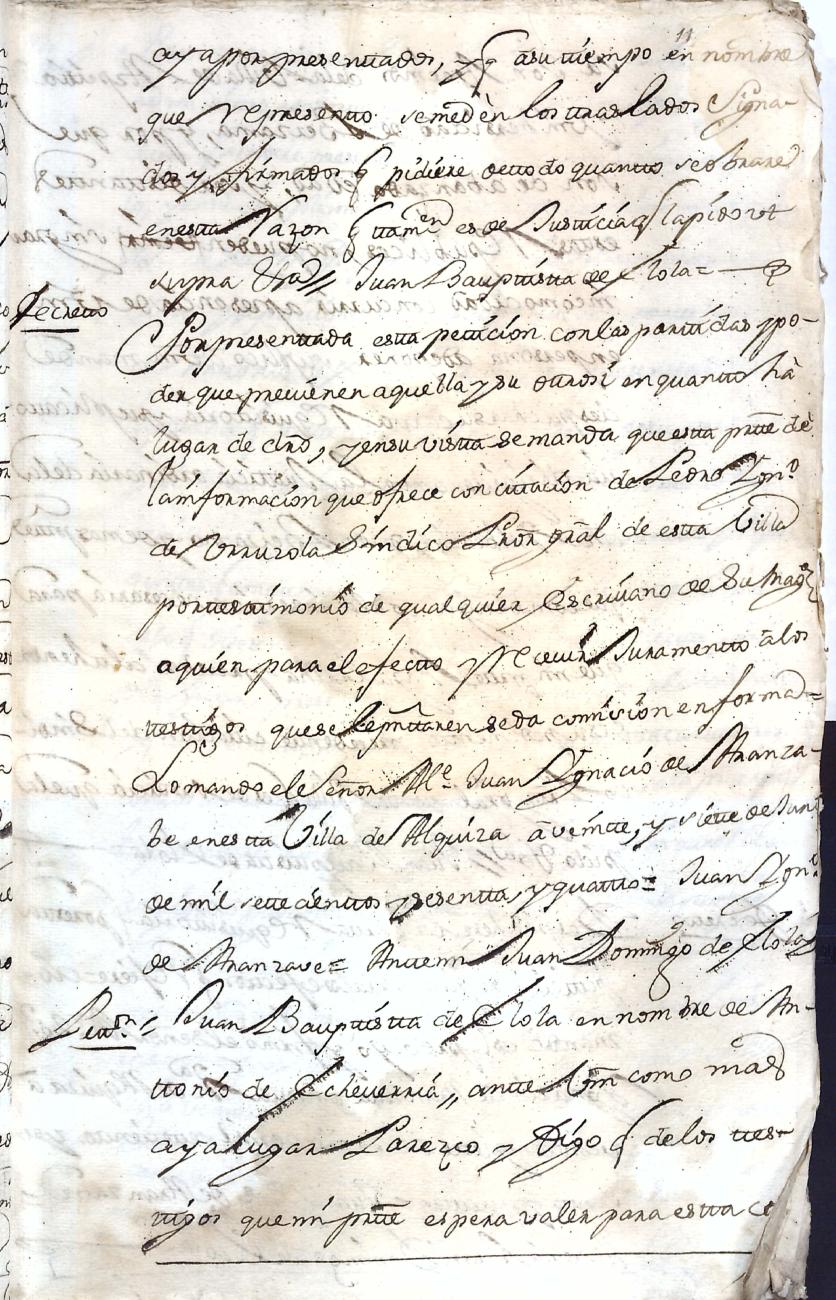 11
aya por presenttados, y q̃ a su tiempo en nombre
que represento se me dèn los traslados Signa-
dos y firmados q̃ pidiere de ttodo quantto se obrare
en estta Razon q̃ ttamen es de Justticia q̃ la pido vt
supra Etta// Juan Bauptista de Elola=
Decretto
Por presenttada estta petticion con las parttidas y po-
der que previenen aquella y su ottrosi en quantto hà
lugar de dro, y en su vistta se manda que estta partte dè
la informacion que ofrece con cittacion de Pedro Ygno
de Vrruzola Sindico Pror gral de estta Villa
por testtimonio de qualquier Escrivano de Su Magd
a quien para el efectto y recevir Juramentto à los
testtigos que se le presenttaren se da comision en forma=
Lo mandò el Señor Alce Juan Ygnacio de Aranza-
be en estta Villa de Alquiza à veintte, y siette de Junio
de mil sette cienttos y sesentta, y quattro= Juan Ygno
de Aranzave= Antte mi Juan Domingo de Elola//
Pettn//
Juan Bauptistta de Elola en nombre de An-
ttonio de Echeverria,, antte Vm como mas
aya lugar Parezco y Digo q̃ de los tes-
ttigos que mi partte espera valer para estta